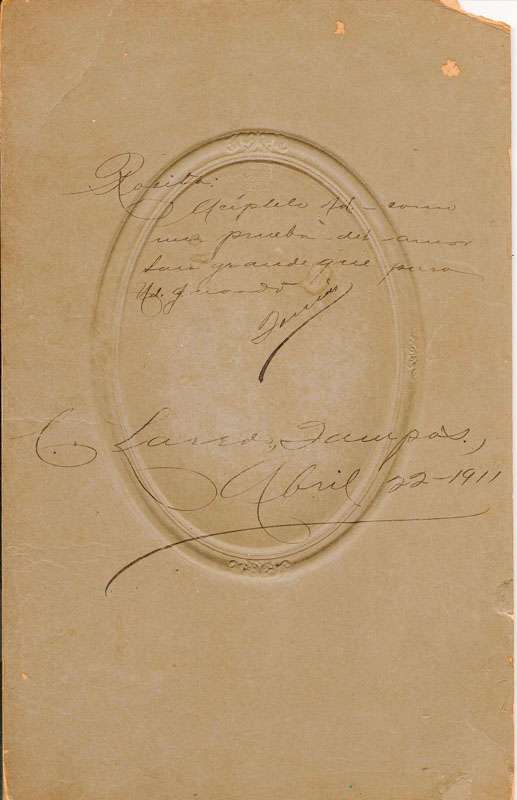 Rosita:
Acéptelo Ud. como
una prueba del amor
tan grande que para
Ud. guardo
C. Laredo, Tamps.,
Abril 22-1911